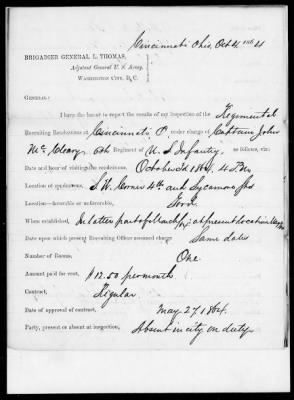 Cincinnati Ohio, Oct 4 1864
BRIGADIER GENERAL L. THOMAS,
Adjutant General U. S. Army,
WASHINGTON CITY, D. C.
GENERAL:
I have the honor to report the results of my inspection of the Regimental
Recruiting Rendezvous at Cincinnati O under charge of Captain John
McCleary 6th Regiment of U. S Infantry, as follows, viz:
Date and hour of visiting the rendezvous, October 4 1864, 4 P.M
Location of quarters, S. W. Corner 4th and Sycamore
Location—favorable or unfavorable, Good.
When established, In latter part of March at present location May
Date upon which present Recruiting Officer assumed charge Same dates
Number of Rooms, One
Amount paid for rent, $12.50 per month
Contract, Regular
Date of approval of contract, May 27 1864.
Party, present or absent at inspection, Absent in city on duty